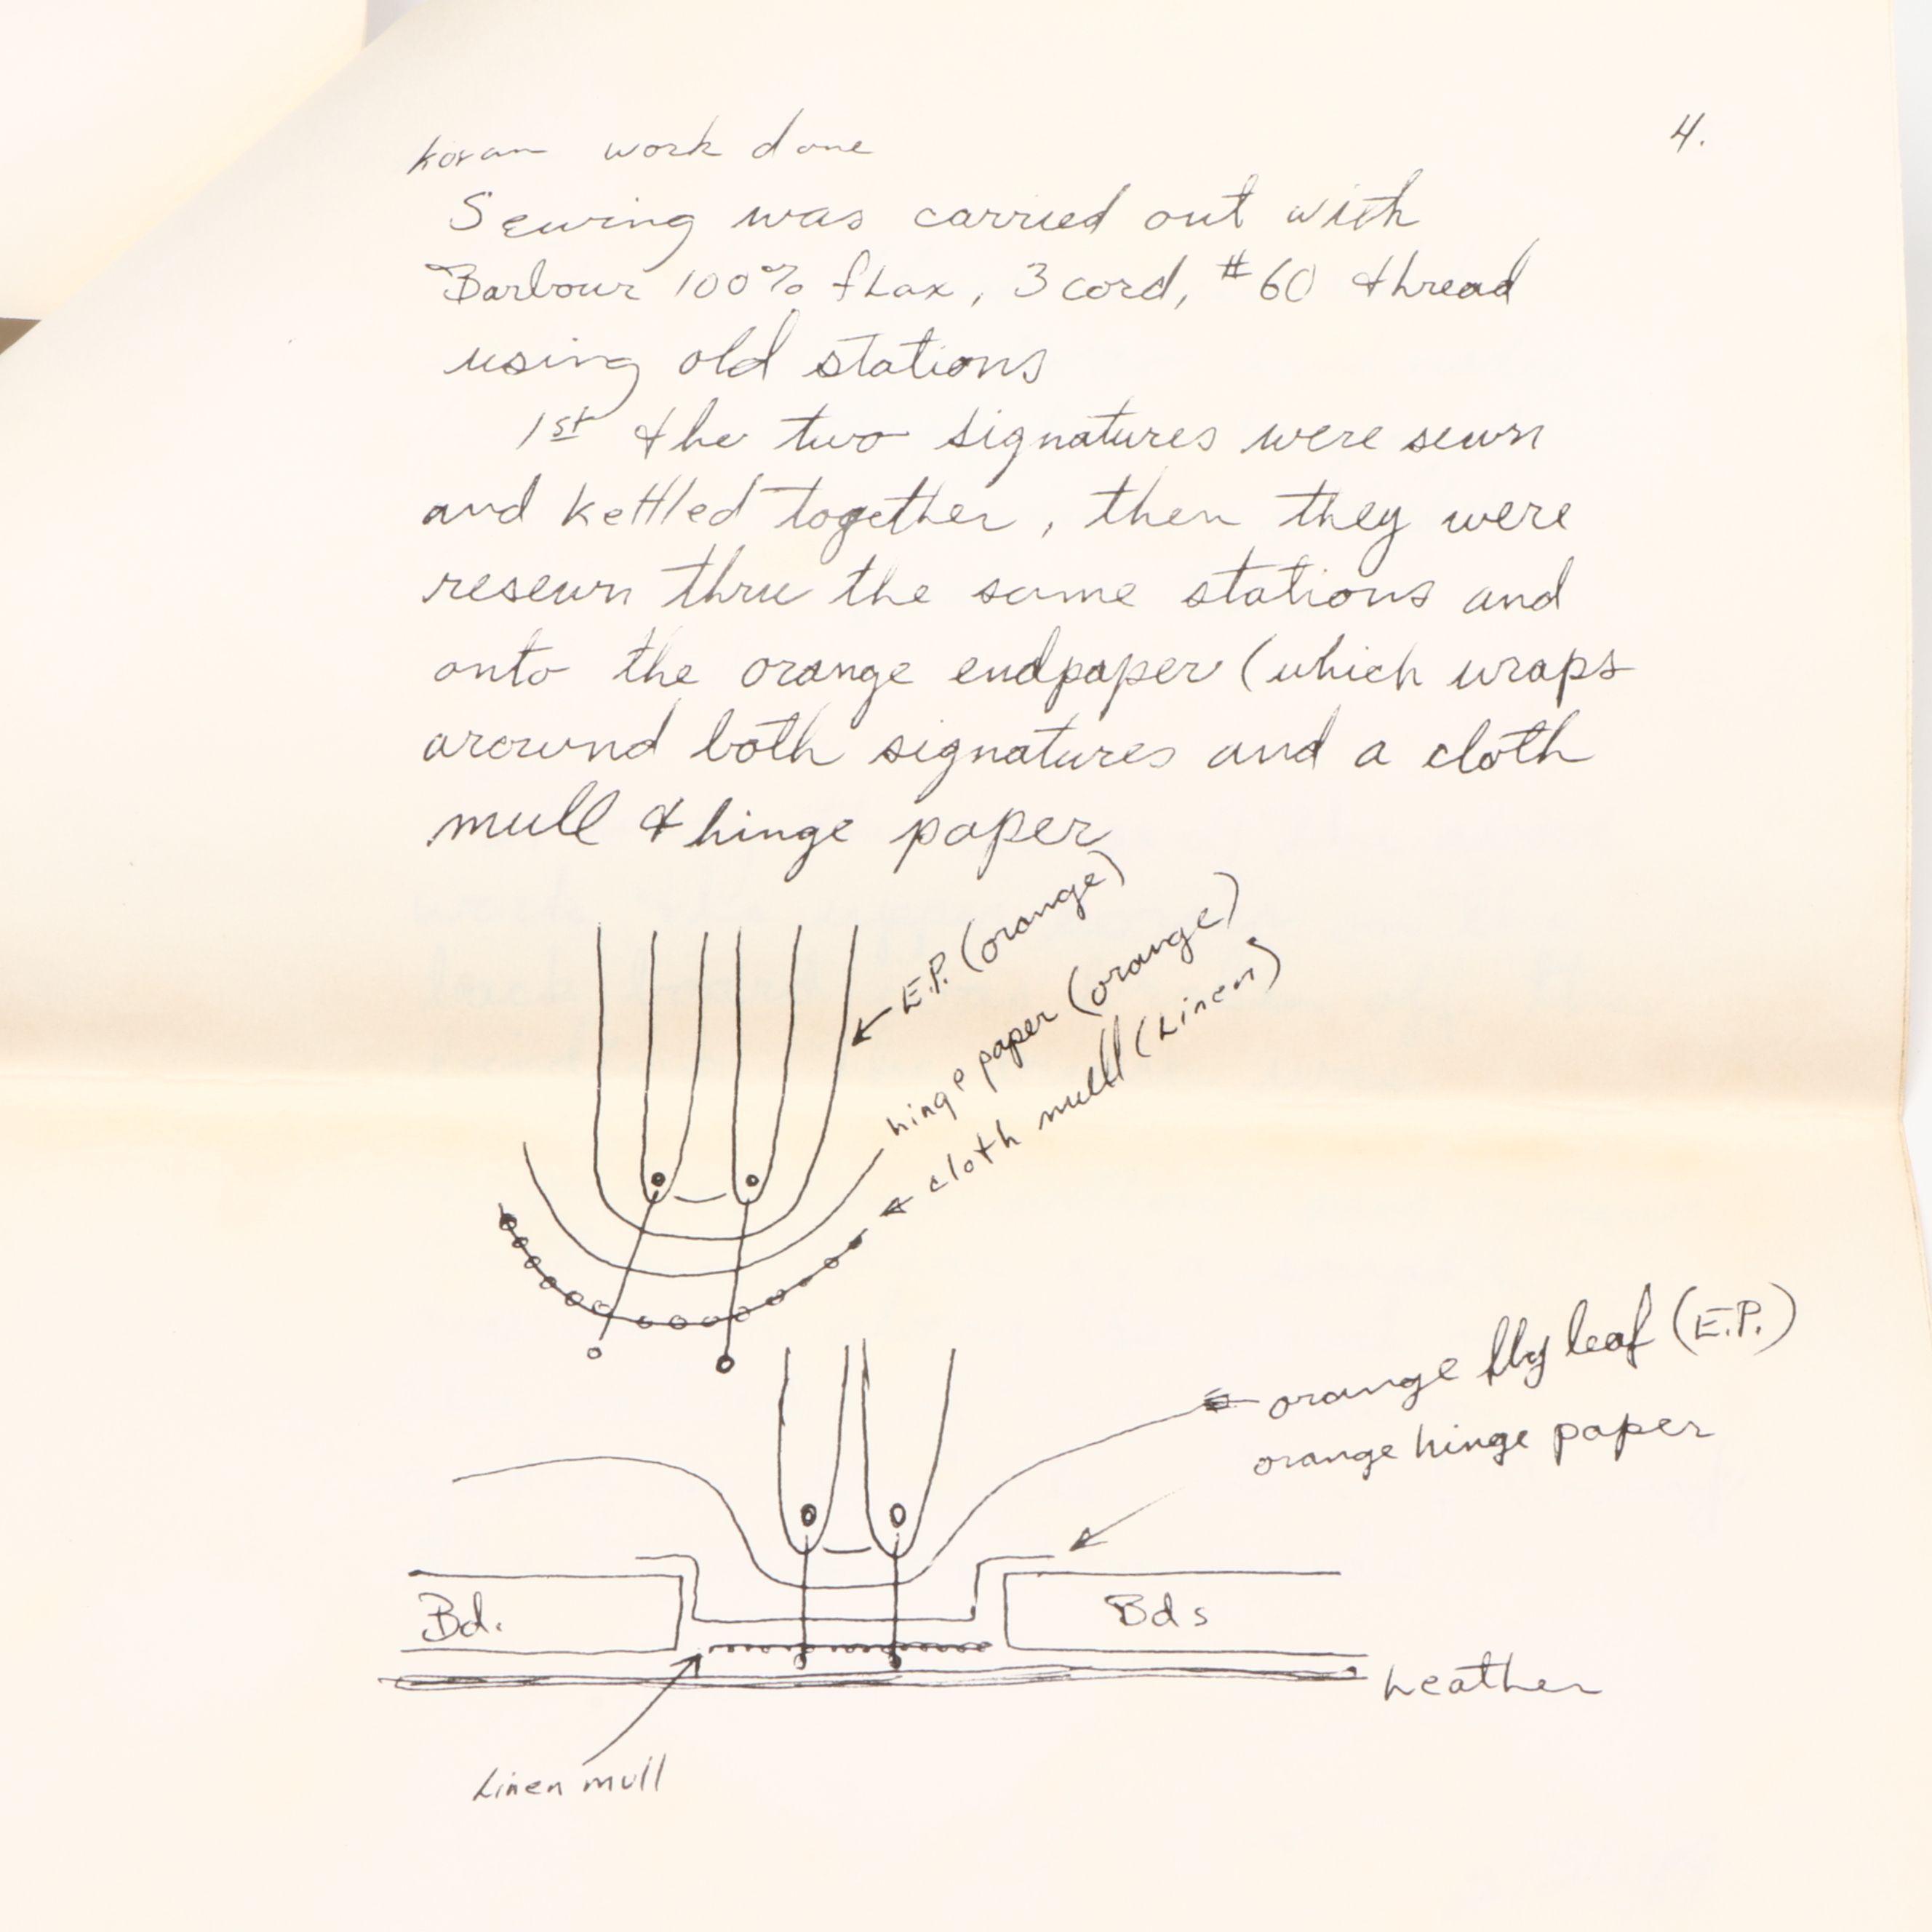 Koran work done
4.
Sewing was carried out with
Barbour 100% flax, 3 cord, #60 thread
using old stations
1st the two signatures were sewn
and kettled together, then they were
resewn thru the same stations and
onto the orange endpaper (which wraps
around both signatures and a cloth
mull & hinge paper
E.P. (orange)
hinge paper (orange)
cloth mull (Linen)
orange fly leaf (E.P.)
orange hinge paper
Bd.
Bds
Leather
Linen mull